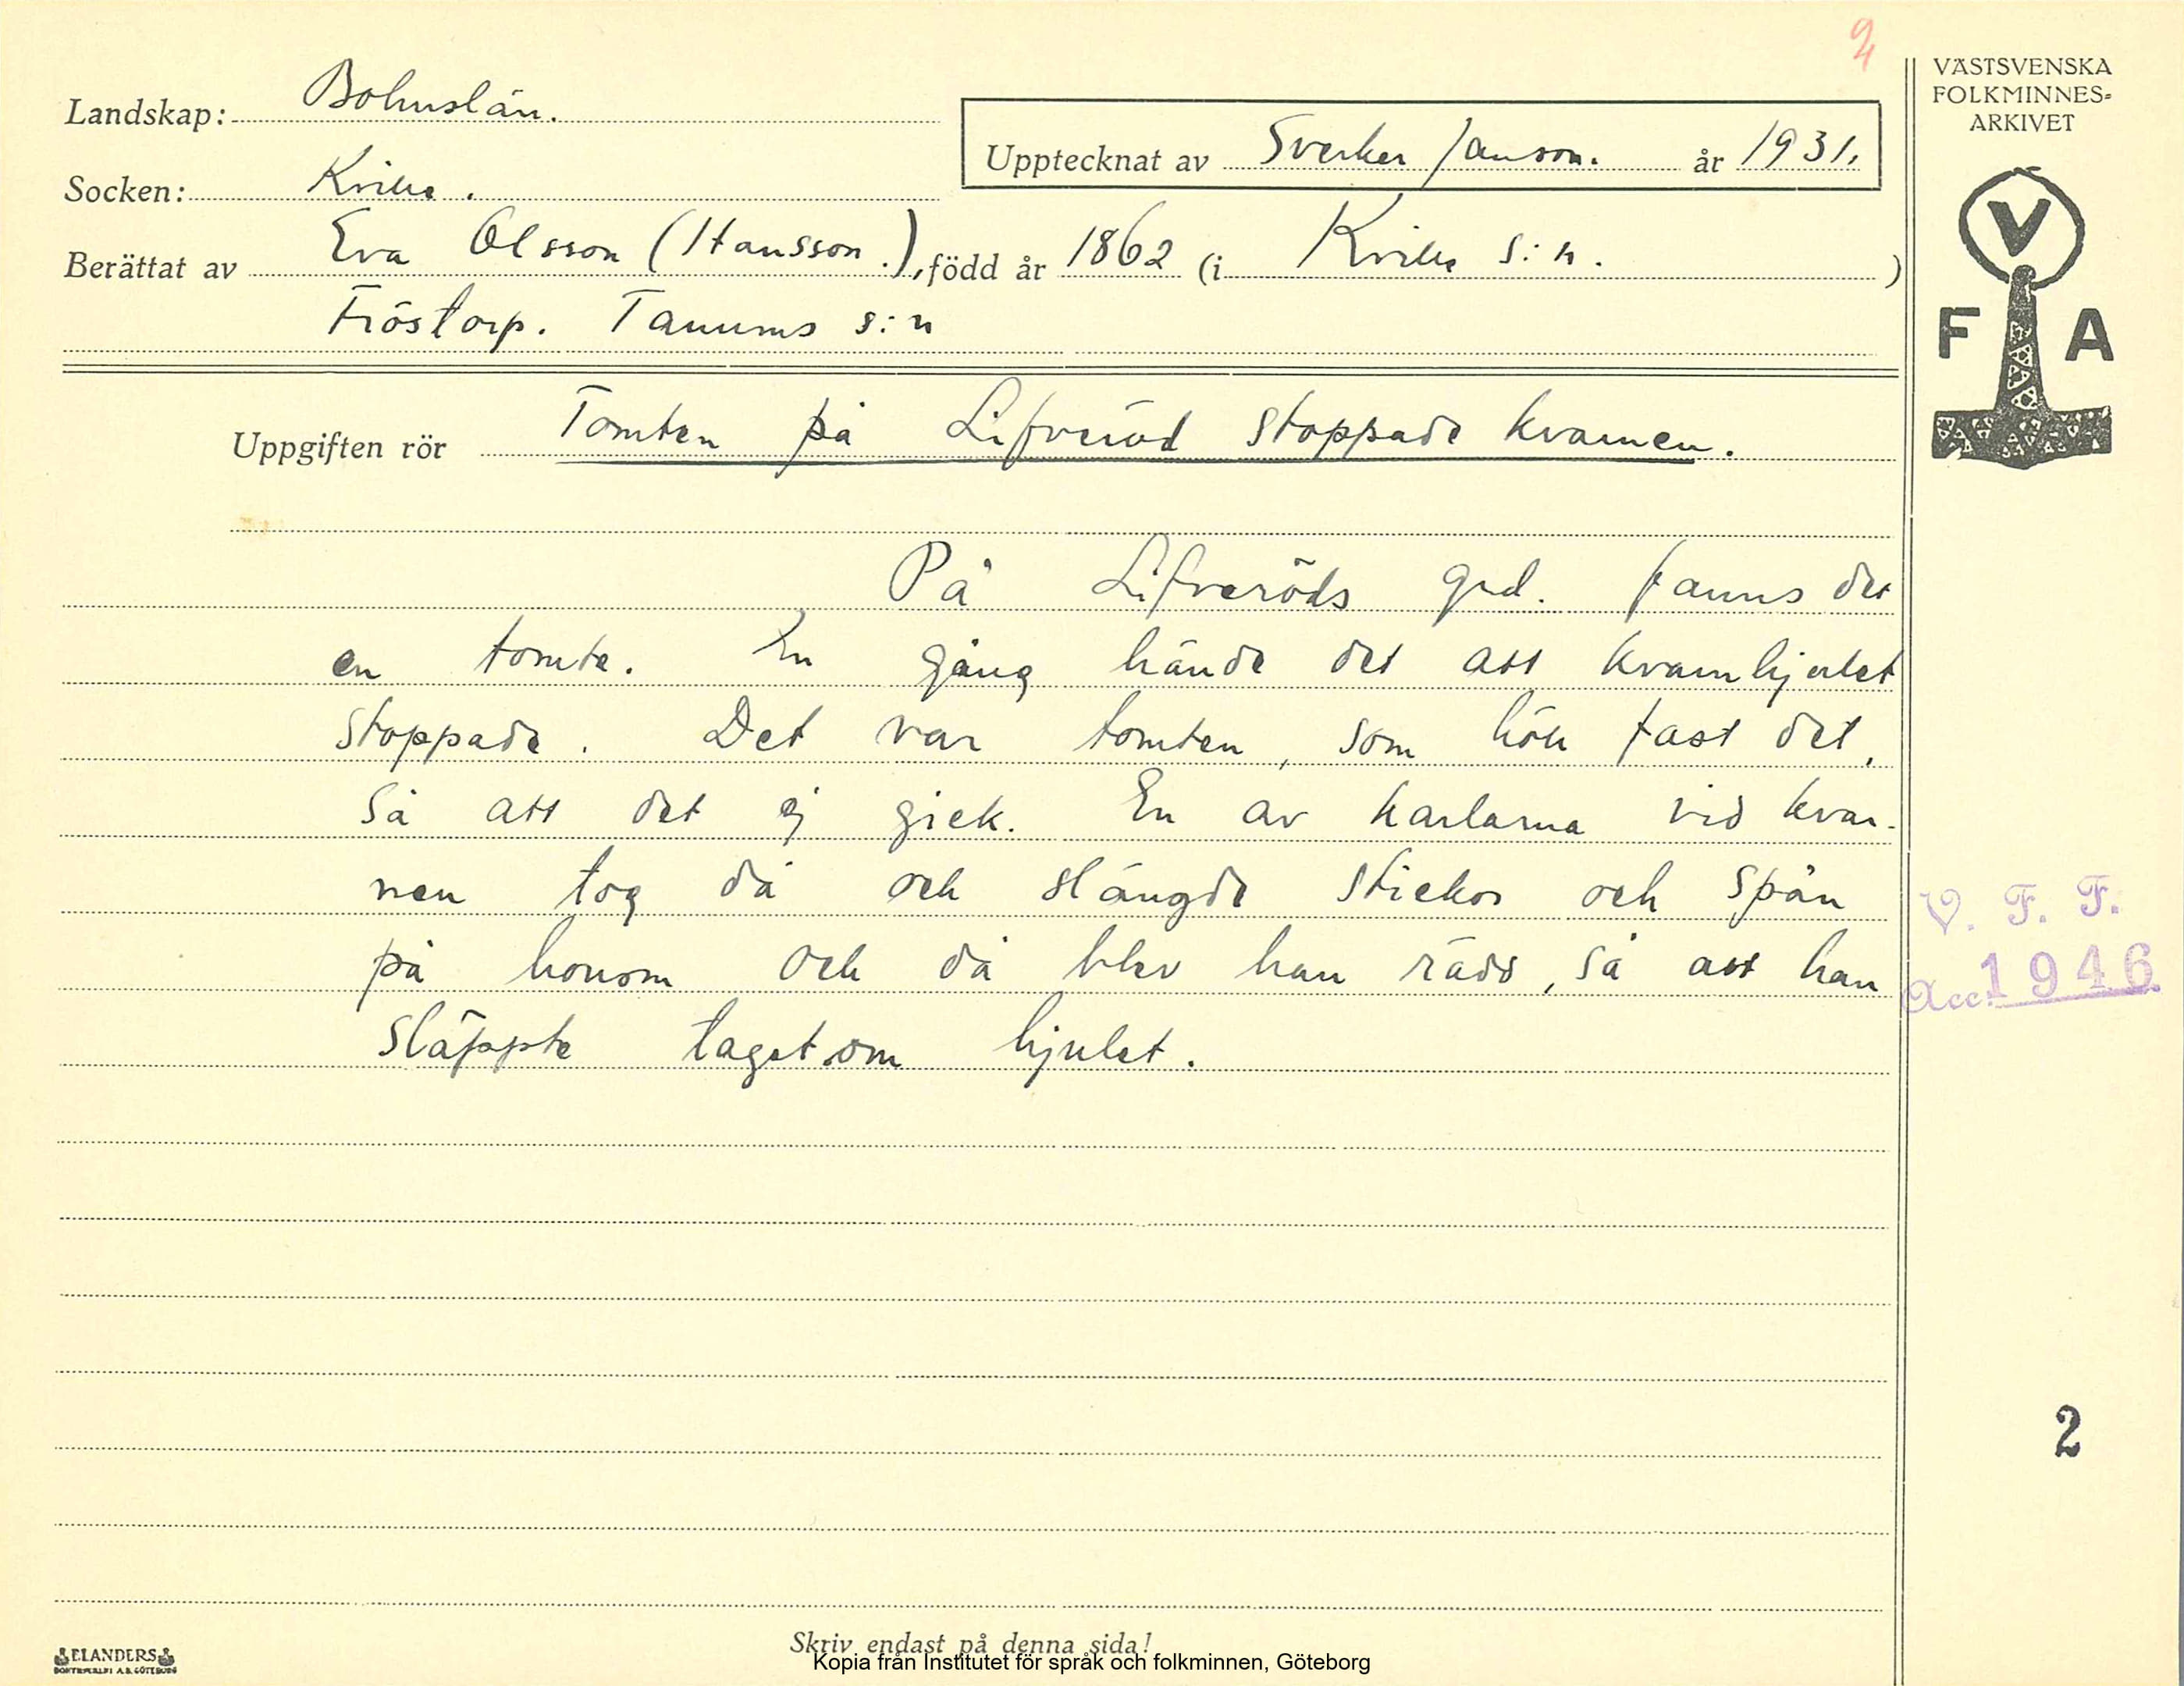 94
VÄSTSVENSKA
FOLKMINNES-
ARKIVET
Landskap: Bohuslän.
Upptecknat av Sverker Janson. år 1931.
Socken: Kville.
Berättat av Eva Olsson (Hansson.), född år 1862 (i Kville s:n.)
Fröstorp. Tanums s:n
V
F A
Uppgiften rör Tomten på Lifveröd stoppade kvarnen.
På Lifveröds grd. fanns det
en tomte. En gång hände det att kvarnhjulet
stoppade. Det var tomten, som höll fast det,
så att det ej gick. En av karlarna vid kvar-
nen tog då och slängde stickor och spån
på honom och då blev han rädd, så att han
släppte taget om hjulet.
V. F. F.
Acc. 1946
2
Skriv endast på denna sida!
ELANDERS
BOKTRYCKERI A.B. GÖTEBORG
Kopia från Institutet för språk och folkminnen, Göteborg